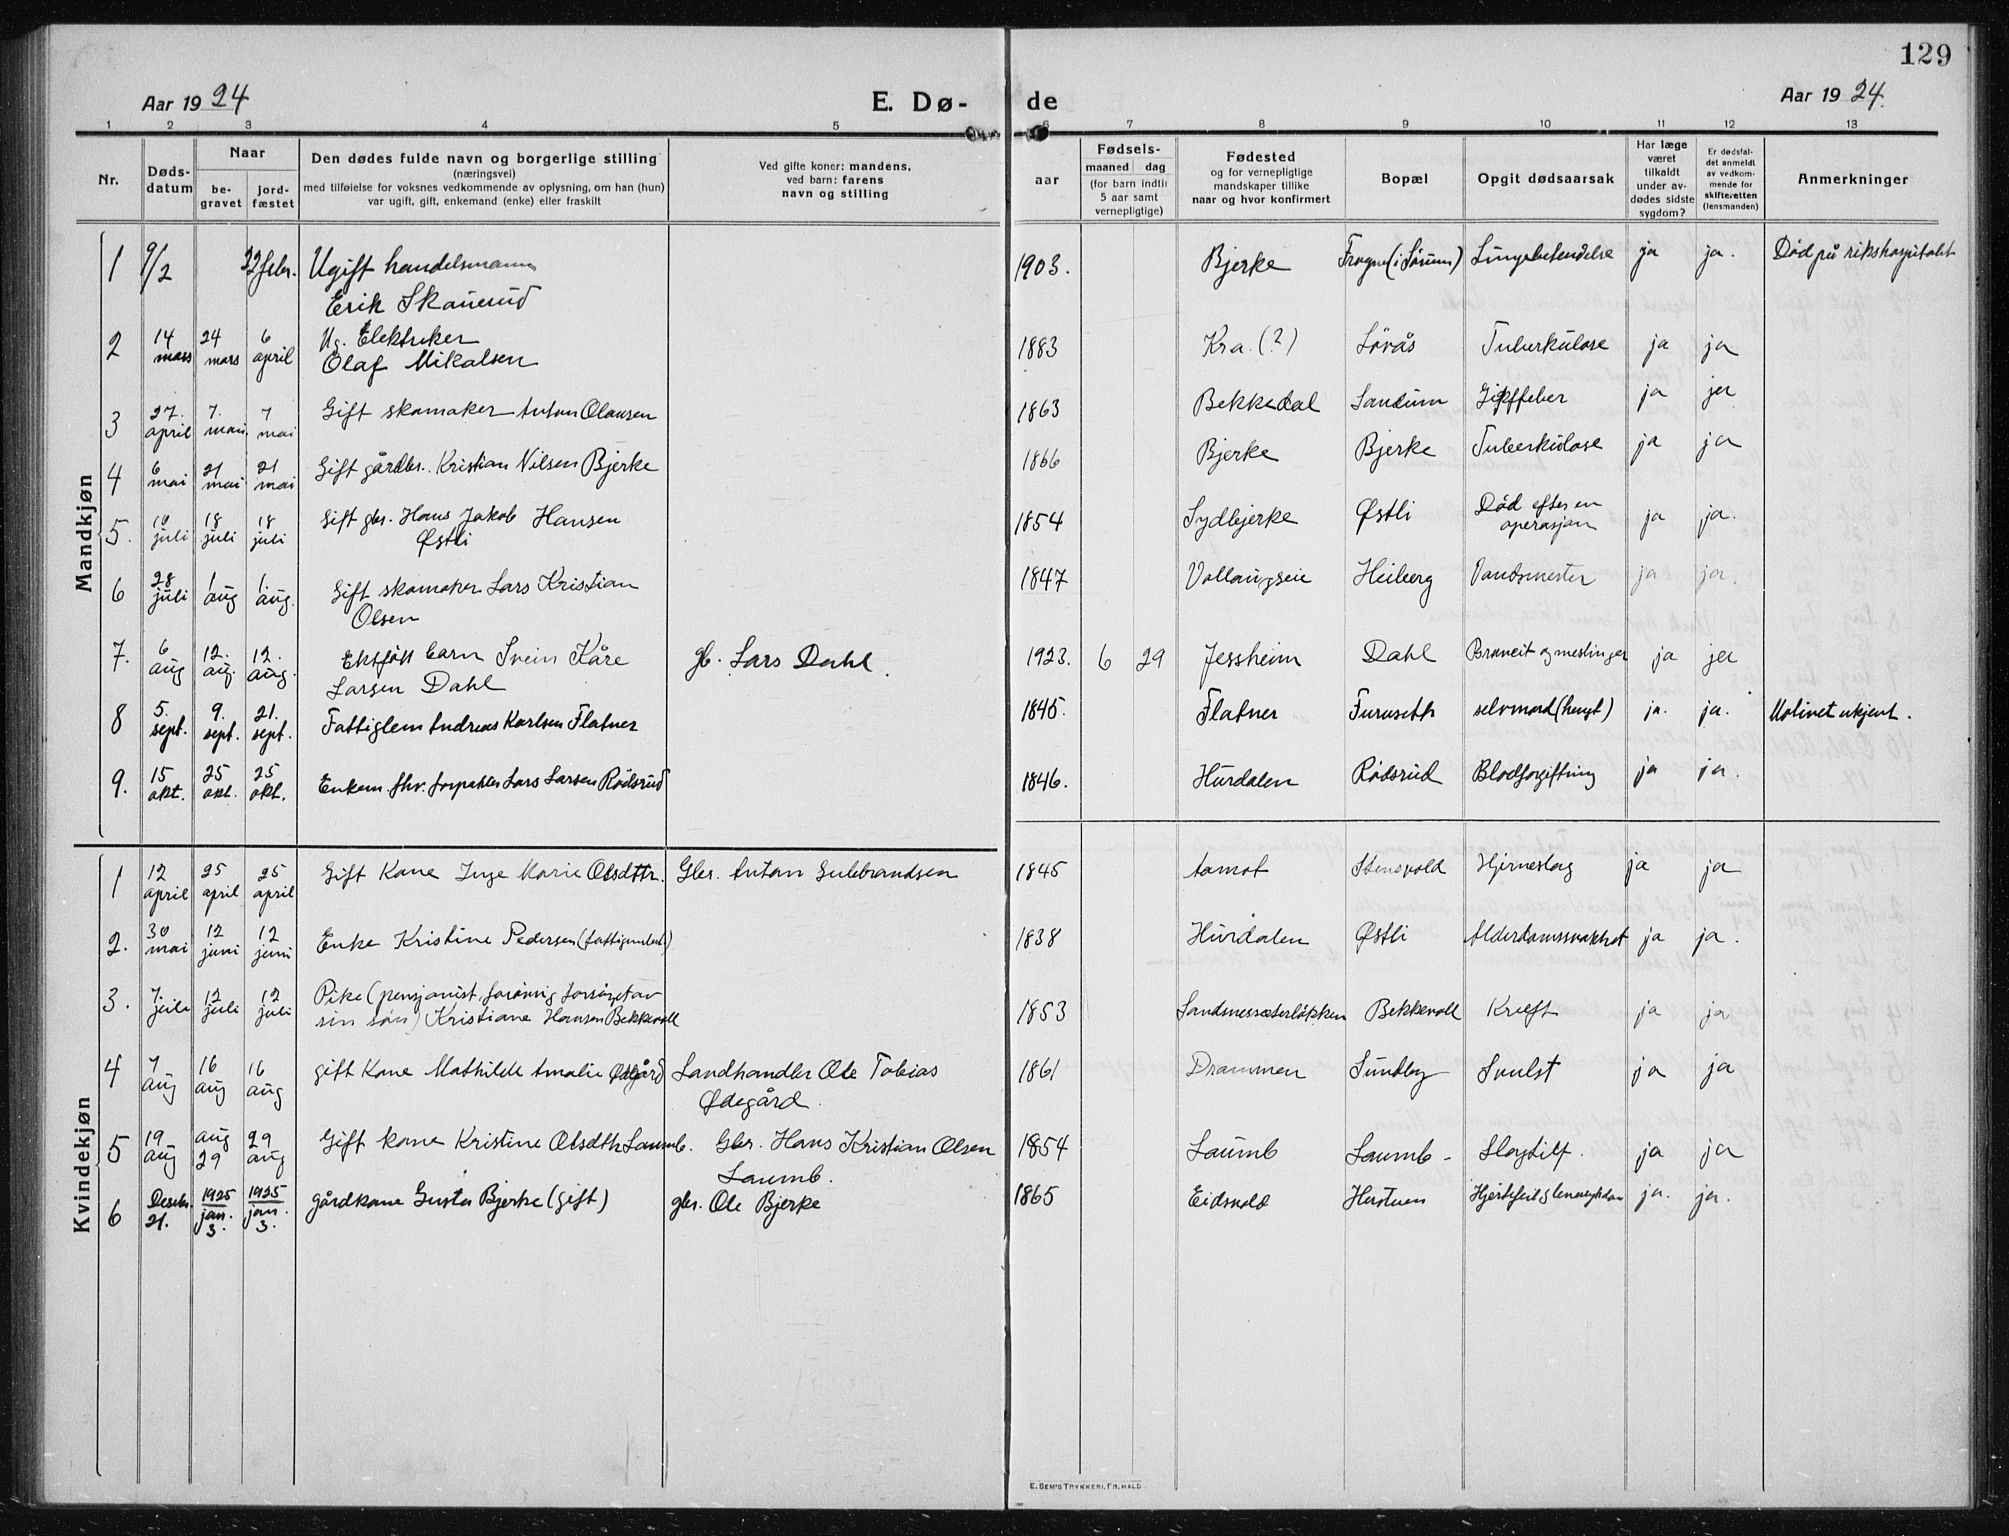 129
Aar 1924
E. Dø-
de
Aar 1924.
1 2 3 4 5 6 7 8 9 10 11 12 13
Nr.
Døds-
datum
Naar
be-
gravet
jord-
fæstet
Den dødes fulde navn og borgerlige stilling
(næringsvei)
med tilføielse for voksnes vedkommende av oplysning, om han (hun)
var ugift, gift, enkemand (enke) eller fraskilt
Ved gifte koner: mandens,
ved barn: farens
navn og stilling
aar
Fødsels-
maaned dag
(for barn indtil
5 aar samt
vernepligtige)
Fødested
og for vernepligtige
mandskaper tillike
naar og hvor konfirmert
Bopæl
Opgit dødsaarsak
Har læge
været
tilkaldt
under av-
dødes sidste
sygdom?
Er dødsfal-
det anmeldt
av vedkom-
mende for
skifteretten
(lensmanden)
Anmerkninger
Mandkjøn
1 9/2 22 febr. Ugift handelsmann
Erik Skauerud
1903. Bjerke Frogne (i Sørum) Lungebetendelse ja ja. Død på rikshospitalet
2 14 mars 24 mars 6 april Ug. Elektriker
Olaf Mikalsen
1883 Kra. (?) Løvås Tuberkulose ja ja
3 27. april 7. mai 7 mai Gift skomaker Anton Olausen
1863 Bekkedal Sandum Giftfeber ja ja
4 6 mai 21 mai 21 mai Gift gårdbr. Kristian Nilsen Bjerke
1866 Bjerke Bjerke Tuberkulose ja ja
5. 10 juli 18 juli 18 juli Gift gbr. Hans Jakob Hansen
Østli
1854 Sydbjerke Østli Død efter en
operasjon ja ja.
6 28 juli 1 aug 1 aug. Gift skomaker Lars Kristian
Olsen
1847 Vollaugseie Heiberg ja ja.
7. 6 aug 12. aug. 12. aug. Ektføtt barn Svein Kåre
Larsen Dahl
gb. Lars Dahl
1923. 6 29 Jessheim Dahl og meslinger ja ja
8 5. sept. 9. sept. 21. sept. Fattiglem Andreas Karlsen Flatner
1845. Flatner Furuseth selvmord (hengt) ja. ja. Motivet ukjent.
9. 15 okt. 25 okt. 25 okt. Enkem. fhv. forpakter Lars Larsen Rødsrud
1846. Hurdalen Rødsrud Blodforgiftning ja ja.
Kvindekjøn
1 12 april 25 april 25 april Gift Kone Inge Marie Olsdttr. Gbr. Anton Gulebrandsen
1845 Aamot Stensvold Hjerneslag ja ja
2. 30 mai 12 juni 12 juni Enke Kristine Pedersen
1838 Hurdalen Østli Alderdomssvakhet ja ja.
3. 7. juli 12 juli 12 juli Pike (pensjonist, forøvrig forsørget av
sin søn) Kristiane Hansen Bekkevoll
1853 Sandsnessæterløkken Bekkevoll Kreft ja ja
4 7 aug 16 aug 16 aug gift Kone Mathilde Amalie Ødegård Landhandler Ole Tobias
Ødegård.
1861 Drammen Sundby Svulst ja ja
5 19 aug aug 29 29 aug Gift kone Kristine Olsdttr Laumb. Gbr. Hans Kristian Olsen
Laumb.
1854 Laumb Laumb - Slagtilf. ja ja
6 Desebr. 21. 1925 jan. 3. 1925 jan. 3. gårdkone Gusta Bjerke (gift) gbr. Ole Bjerke
1865 Eidsvold Herstuen ja. ja.
E. SEM'S TRYKKERI, FR.HALD